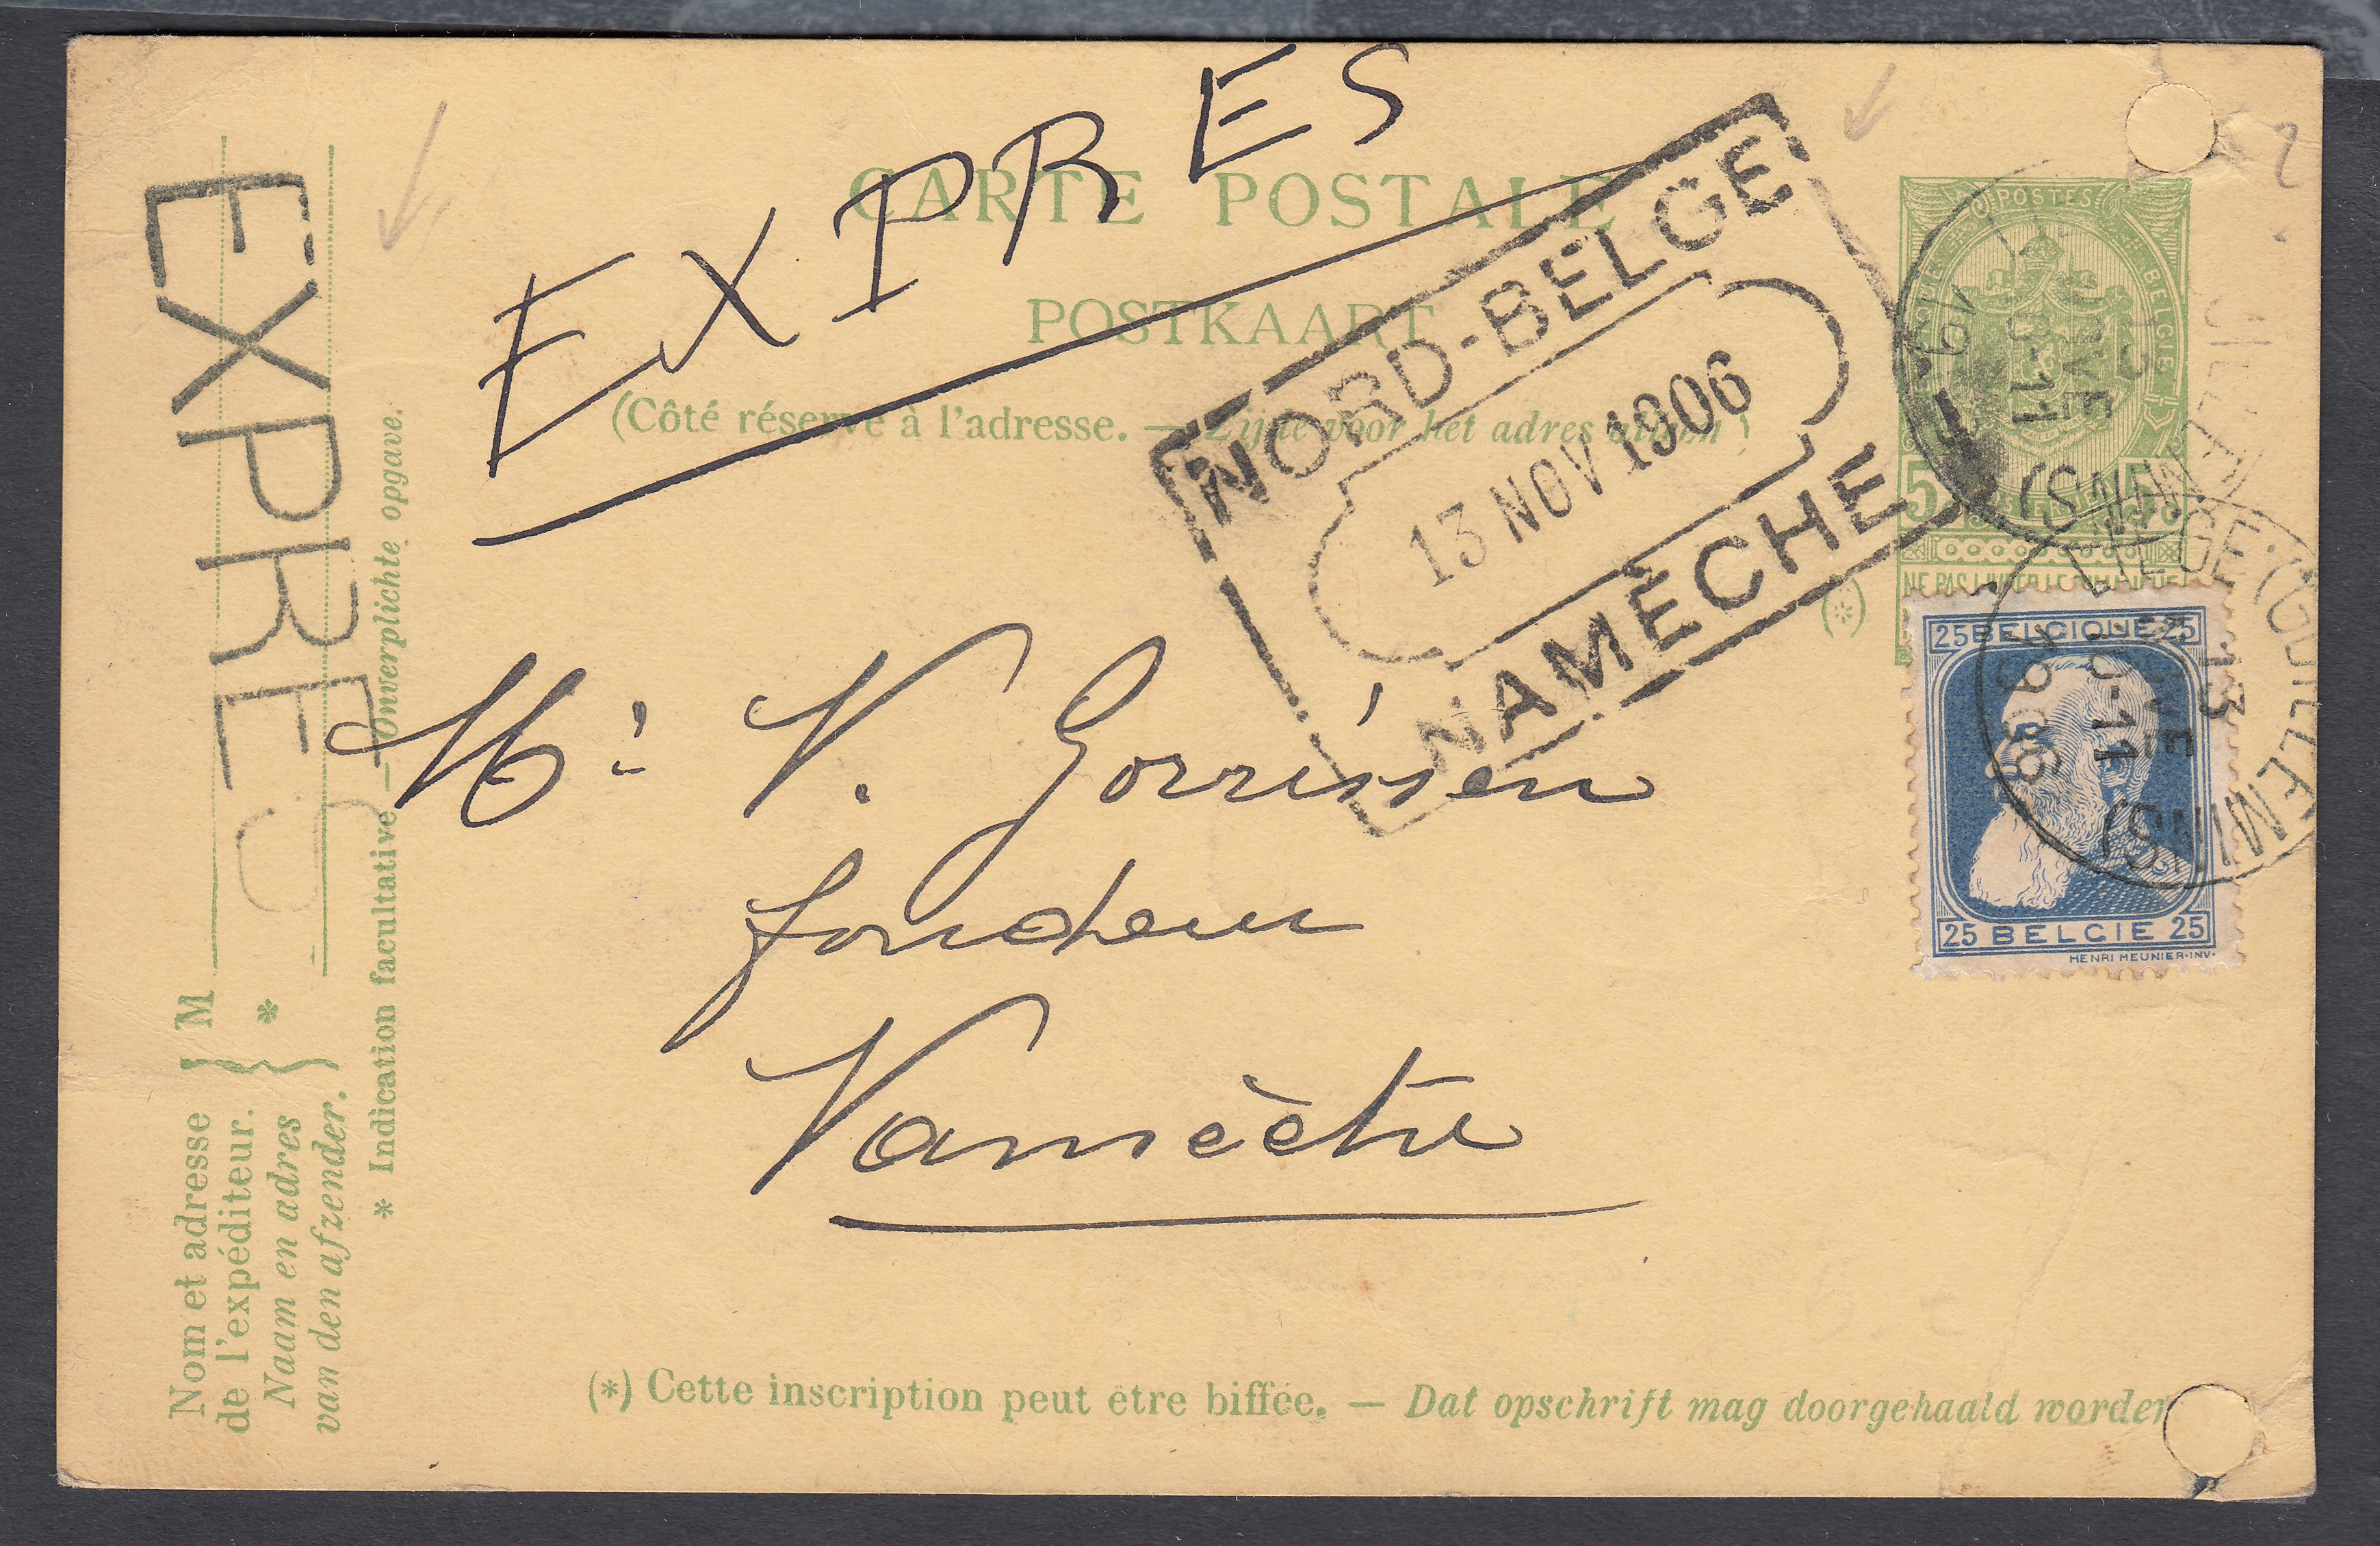 EXPRES
CARTE POSTALE
POSTKAART
(Côté réservé à l'adresse. — Zijde voor het adres alleen)
NORD-BELGE
13 NOV 1906
NAMECHE
EXPRES
POSTES
BELGIE
5 5
NE PAS LIVRER LE DIMANCHE
(*)
LIEGE (GUILLEMINS)
13
NOVE
10-11
19
LIEGE (GUILLEMINS)
13
NOVE
10-11
1906
25 BELGIQUE 25
25 BELGIE 25
HENRI MEUNIER·INV·
Mr V. Gorrissen
fondeur
Namèche
Nom et adresse
de l'expéditeur.
} M
Naam en adres
van den afzender.
} *
* Indication facultative — Onverplichte opgave.
(*) Cette inscription peut être biffée. — Dat opschrift mag doorgehaald worden